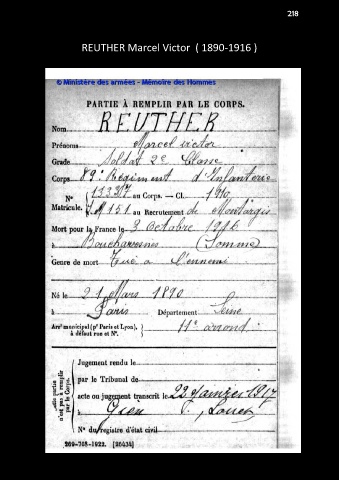 218
REUTHER Marcel Victor ( 1890-1916 )
© Ministère des armées - Mémoire des Hommes
PARTIE À REMPLIR PAR LE CORPS.
Nom REUTHER
Prénoms Marcel victor
Grade Soldat 2e Classe
Corps 89e Régiment d'Infanterie
N° 13317 au Corps. — Cl. 1910
Matricule. 151 au Recrutement de Montargis
Mort pour la France le 3 Octobre 1916
à Bouchavesnes (Somme)
Genre de mort Tué à l'ennemi
Né le 21 Mars 1890
à Paris Département Seine
Arrt municipal (pr Paris et Lyon), à défaut rue et N°. 11e arrond.
Cette partie n'est pas à remplir par le Corps.
Jugement rendu le
par le Tribunal de
acte ou jugement transcrit le 22 Janvier 1917
à Gien Loiret
N° du registre d'état civil
269-708-1922. [26434]